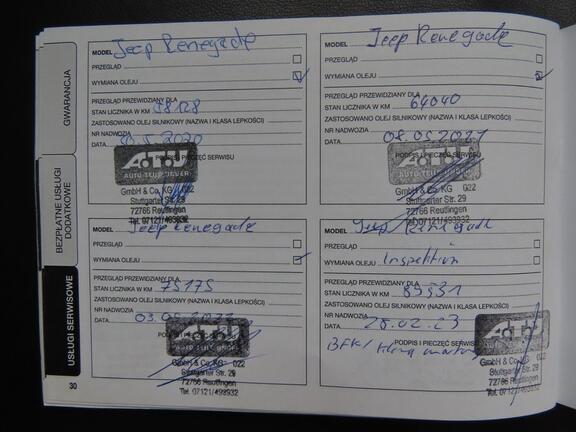 GWARANCJA
BEZPŁATNE USŁUGI
DODATKOWE
USŁUGI SERWISOWE
MODEL Jeep Renegade
PRZEGLĄD
WYMIANA OLEJU
PRZEGLĄD PRZEWIDZIANY DLA
STAN LICZNIKA W KM 58128
ZASTOSOWANO OLEJ SILNIKOWY (NAZWA I KLASA LEPKOŚCI)
NR NADWOZIA
DATA 5 2020
PODPIS I PIECZĘĆ SERWISU
A.T.U
AUTO-TEILE-UNGER
GmbH & Co. KG 022
Stuttgarter Str. 29
72766 Reutlingen
Tel. 07121/493932
MODEL Jeep Renegade
PRZEGLĄD
WYMIANA OLEJU
PRZEGLĄD PRZEWIDZIANY DLA
STAN LICZNIKA W KM 64040
ZASTOSOWANO OLEJ SILNIKOWY (NAZWA I KLASA LEPKOŚCI)
NR NADWOZIA
DATA 08.05.2021
PODPIS I PIECZĘĆ SERWISU
A.T.U
AUTO-TEILE-UNGER
GmbH & Co. KG 022
Stuttgarter Str. 29
72766 Reutlingen
Tel. 07121/493932
MODEL Jeep Renegade
PRZEGLĄD
WYMIANA OLEJU
PRZEGLĄD PRZEWIDZIANY DLA
STAN LICZNIKA W KM 75175
ZASTOSOWANO OLEJ SILNIKOWY (NAZWA I KLASA LEPKOŚCI)
NR NADWOZIA
DATA 03.05.2022
PODPIS I PIECZĘĆ SERWISU
GmbH & Co. KG 022
Stuttgarter Str. 29
72766 Reutlingen
Tel. 07121/493932
MODEL Jeep Renegade
PRZEGLĄD
WYMIANA OLEJU Inspektion
PRZEGLĄD PRZEWIDZIANY DLA
STAN LICZNIKA W KM 85531
ZASTOSOWANO OLEJ SILNIKOWY (NAZWA I KLASA LEPKOŚCI)
NR NADWOZIA
DATA 28.02.23
PODPIS I PIECZĘĆ SERWISU
BFK/
GmbH & Co. KG 022
Stuttgarter Str. 29
72766 Reutlingen
Tel. 07121/493932
30